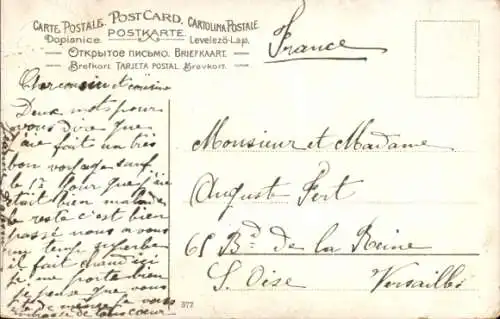 CARTE POSTALE. POST CARD. CARTOLINA POSTALE.
Dopisnice. POSTKARTE Levelező-Lap.
ОТКРЫТОЕ ПИСЬМО. BRIEFKAART.
Brefkort. TARJETA POSTAL. Brevkort.
France
Cher cousin et cousine
Deux mots pour
vous dire que
j'ai fait un très
bon voyage sauf
le 1er jour que j'ai
était bien malade
le reste c'est bien
passé nous avons
un temps superbe
il fait chaud ici
je me porte bien
je pense que vous
de même je vous
embrasse de tous coeur
Monsieur et Madame
Auguste Fert
65 Bd. de la Reine
S. Oise Versailles
372